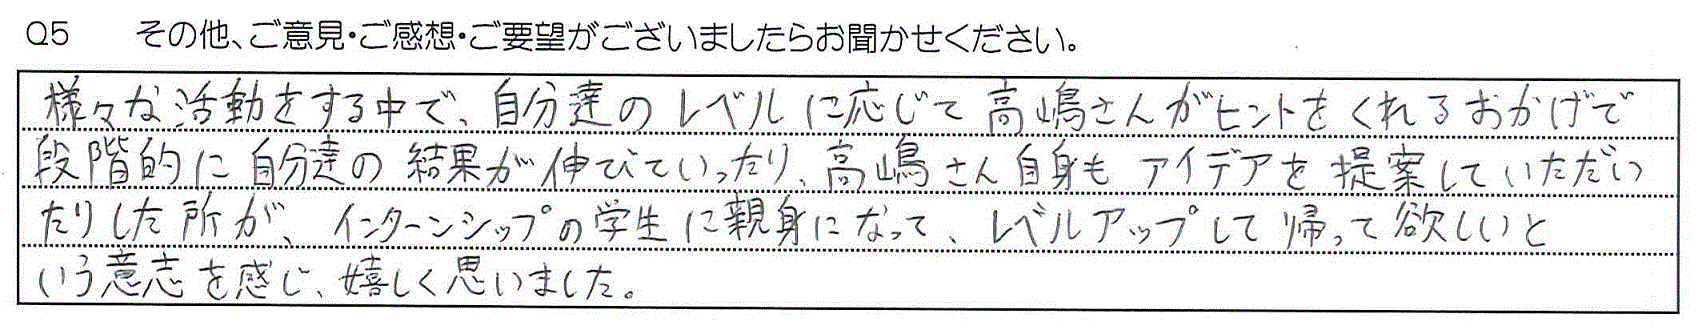 Q5 その他、ご意見・ご感想・ご要望がございましたらお聞かせください。
様々な活動をする中で、自分達のレベルに応じて高嶋さんがヒントをくれるおかげで
段階的に自分達の結果が伸びていったり、高嶋さん自身もアイデアを提案していただい
たりした所が、インターンシップの学生に親身になって、レベルアップして帰って欲しいと
いう意志を感じ、嬉しく思いました。